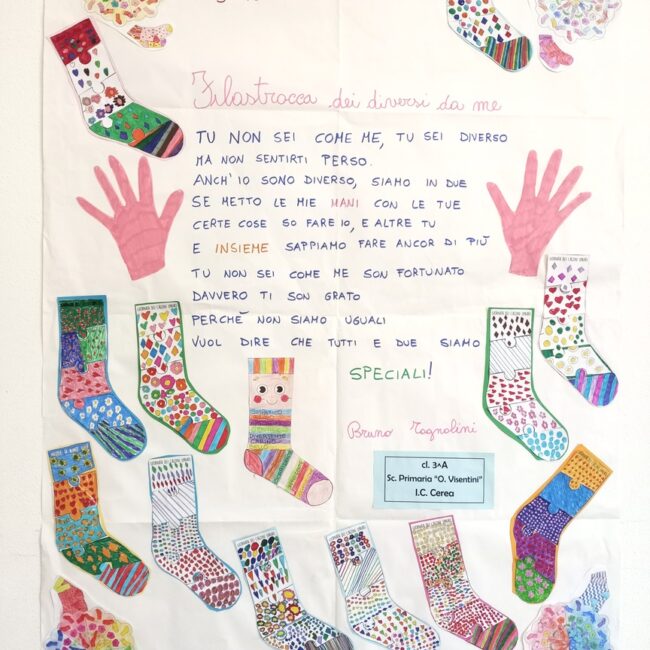 Filastrocca dei diversi da me
TU NON SEI COME ME, TU SEI DIVERSO
MA NON SENTIRTI PERSO.
ANCH'IO SONO DIVERSO, SIAMO IN DUE
SE METTO LE MIE MANI CON LE TUE
CERTE COSE SO FARE IO, E ALTRE TU
E INSIEME SAPPIAMO FARE ANCOR DI PIÙ
TU NON SEI COME ME SON FORTUNATO
DAVVERO TI SON GRATO
PERCHÈ NON SIAMO UGUALI
VUOL DIRE CHE TUTTI E DUE SIAMO
SPECIALI!
Bruno Tognolini
cl. 3^A
Sc. Primaria "O. Visentini"
I.C. Cerea
GIORNATA DEI CALZINI SPAIATI
GIORNATA DEI CALZINI SPAIATI
GIORNATA DEI CALZINI SPAIATI
GIORNATA DEI CALZINI SPAIATI
DIVERTENTE